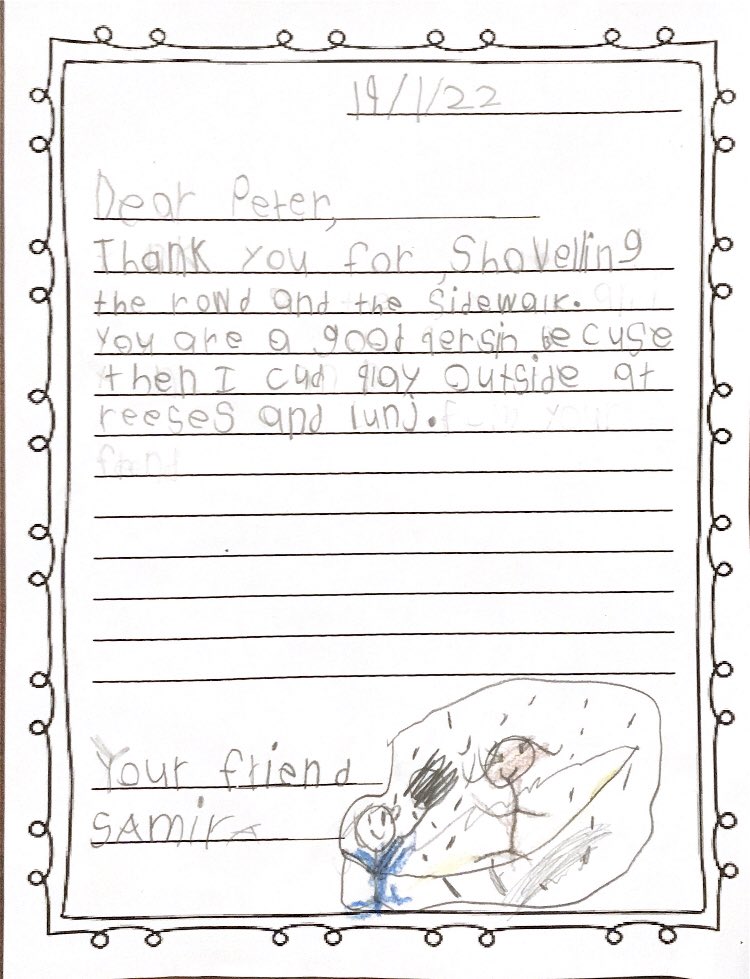 19/1/22
Dear Peter,
Thank you for Shovelling
the rowd and the Sidewalk.
You are a good persin be cuse
then I cud play outside at
reeses and lunj.
Your friend
SAmirA